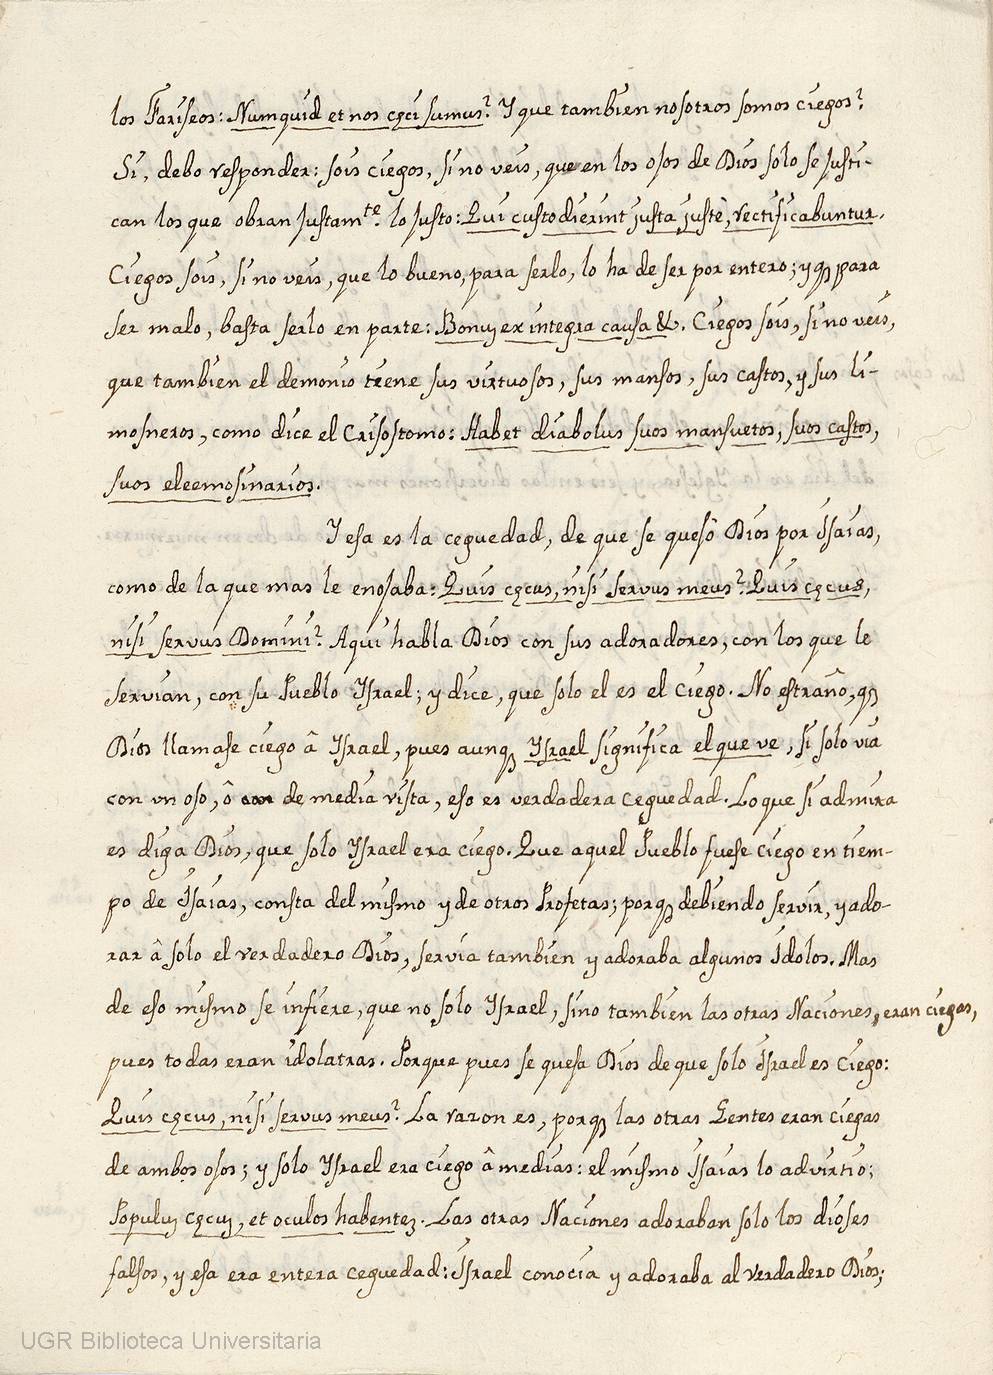 los Fariseos: Numquid et nos cęci sumus? Y que tambien nosotros somos ciegos?
Si, debo responder: sois ciegos, si no veis, que en los ojos de Dios solo se justi-
can los que obran justam.te lo justo: Qui custodierint justa justè, rectificabuntur.
Ciegos sois, si no veis, que lo bueno, para serlo, lo ha de ser por entero; y q̃ para
ser malo, basta serlo en parte: Bonuɜ ex integra causa &. Ciegos sois, si no veis,
que tambien el demonio tiene sus virtuosos, sus mansos, sus castos, y sus li-
mosneros, como dice el Crisostomo: Habet diabolus suos mansuetos, suos castos,
suos eleemosinarios.
Y esa es la ceguedad, de que se quejô Dios por Isaias,
como de la que mas le enojaba: Quis cęcus, nisi servus meus? Quis cęcus,
nisi servus Domini? Aqui habla Dios con sus adoradores, con los que le
servian, con su Pueblo Israel; y dice, que solo el es el ciego. No estraño, q̃
Dios llamase ciego â Israel, pues aunq̃ Israel significa el que ve, si solo via
con un ojo, ô de media vista, eso es verdadera ceguedad. Lo que si admira
es diga Dios, que solo Israel era ciego. Que aquel Pueblo fuese ciego en tiem-
po de Isaias, consta del mismo y de otros Profetas; porq̃ debiendo servir, y ado-
rar â solo el verdadero Dios, servia tambien y adoraba algunos Idolos. Mas
de eso mismo se infiere, que no solo Israel, sino tambien las otras Naciones, eran ciegas,
pues todas eran idolatras. Porque pues se queja Dios de que solo Israel es Ciego:
Quis cęcus, nisi servus meus? La razon es, porq̃ las otras Gentes eran ciegas
de ambos ojos; y solo Israel era ciego â medias: el mismo Isaias lo advirtio;
Populuɜ cęcuɜ, et oculos habenteɜ. Las otras Naciones adoraban solo los dioses
falsos, y esa era entera ceguedad: Israel conocia y adoraba al verdadero Dios;
UGR Biblioteca Universitaria